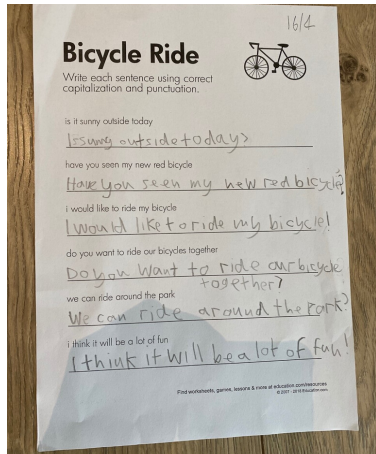 16/4
Bicycle Ride
Write each sentence using correct
capitalization and punctuation.
is it sunny outside today
outside today?
have you seen my new red bicycle
Have you seen my new red bicycle?
i would like to ride my bicycle
I would like to ride my bicycle!
do you want to ride our bicycles together
Do you want to ride our bicycle
together?
we can ride around the park
We can ride around the park?
i think it will be a lot of fun
I think it will be a lot of fun!
Find worksheets, games, lessons & more at education.com/resources
© 2007 - 2018 Education.com